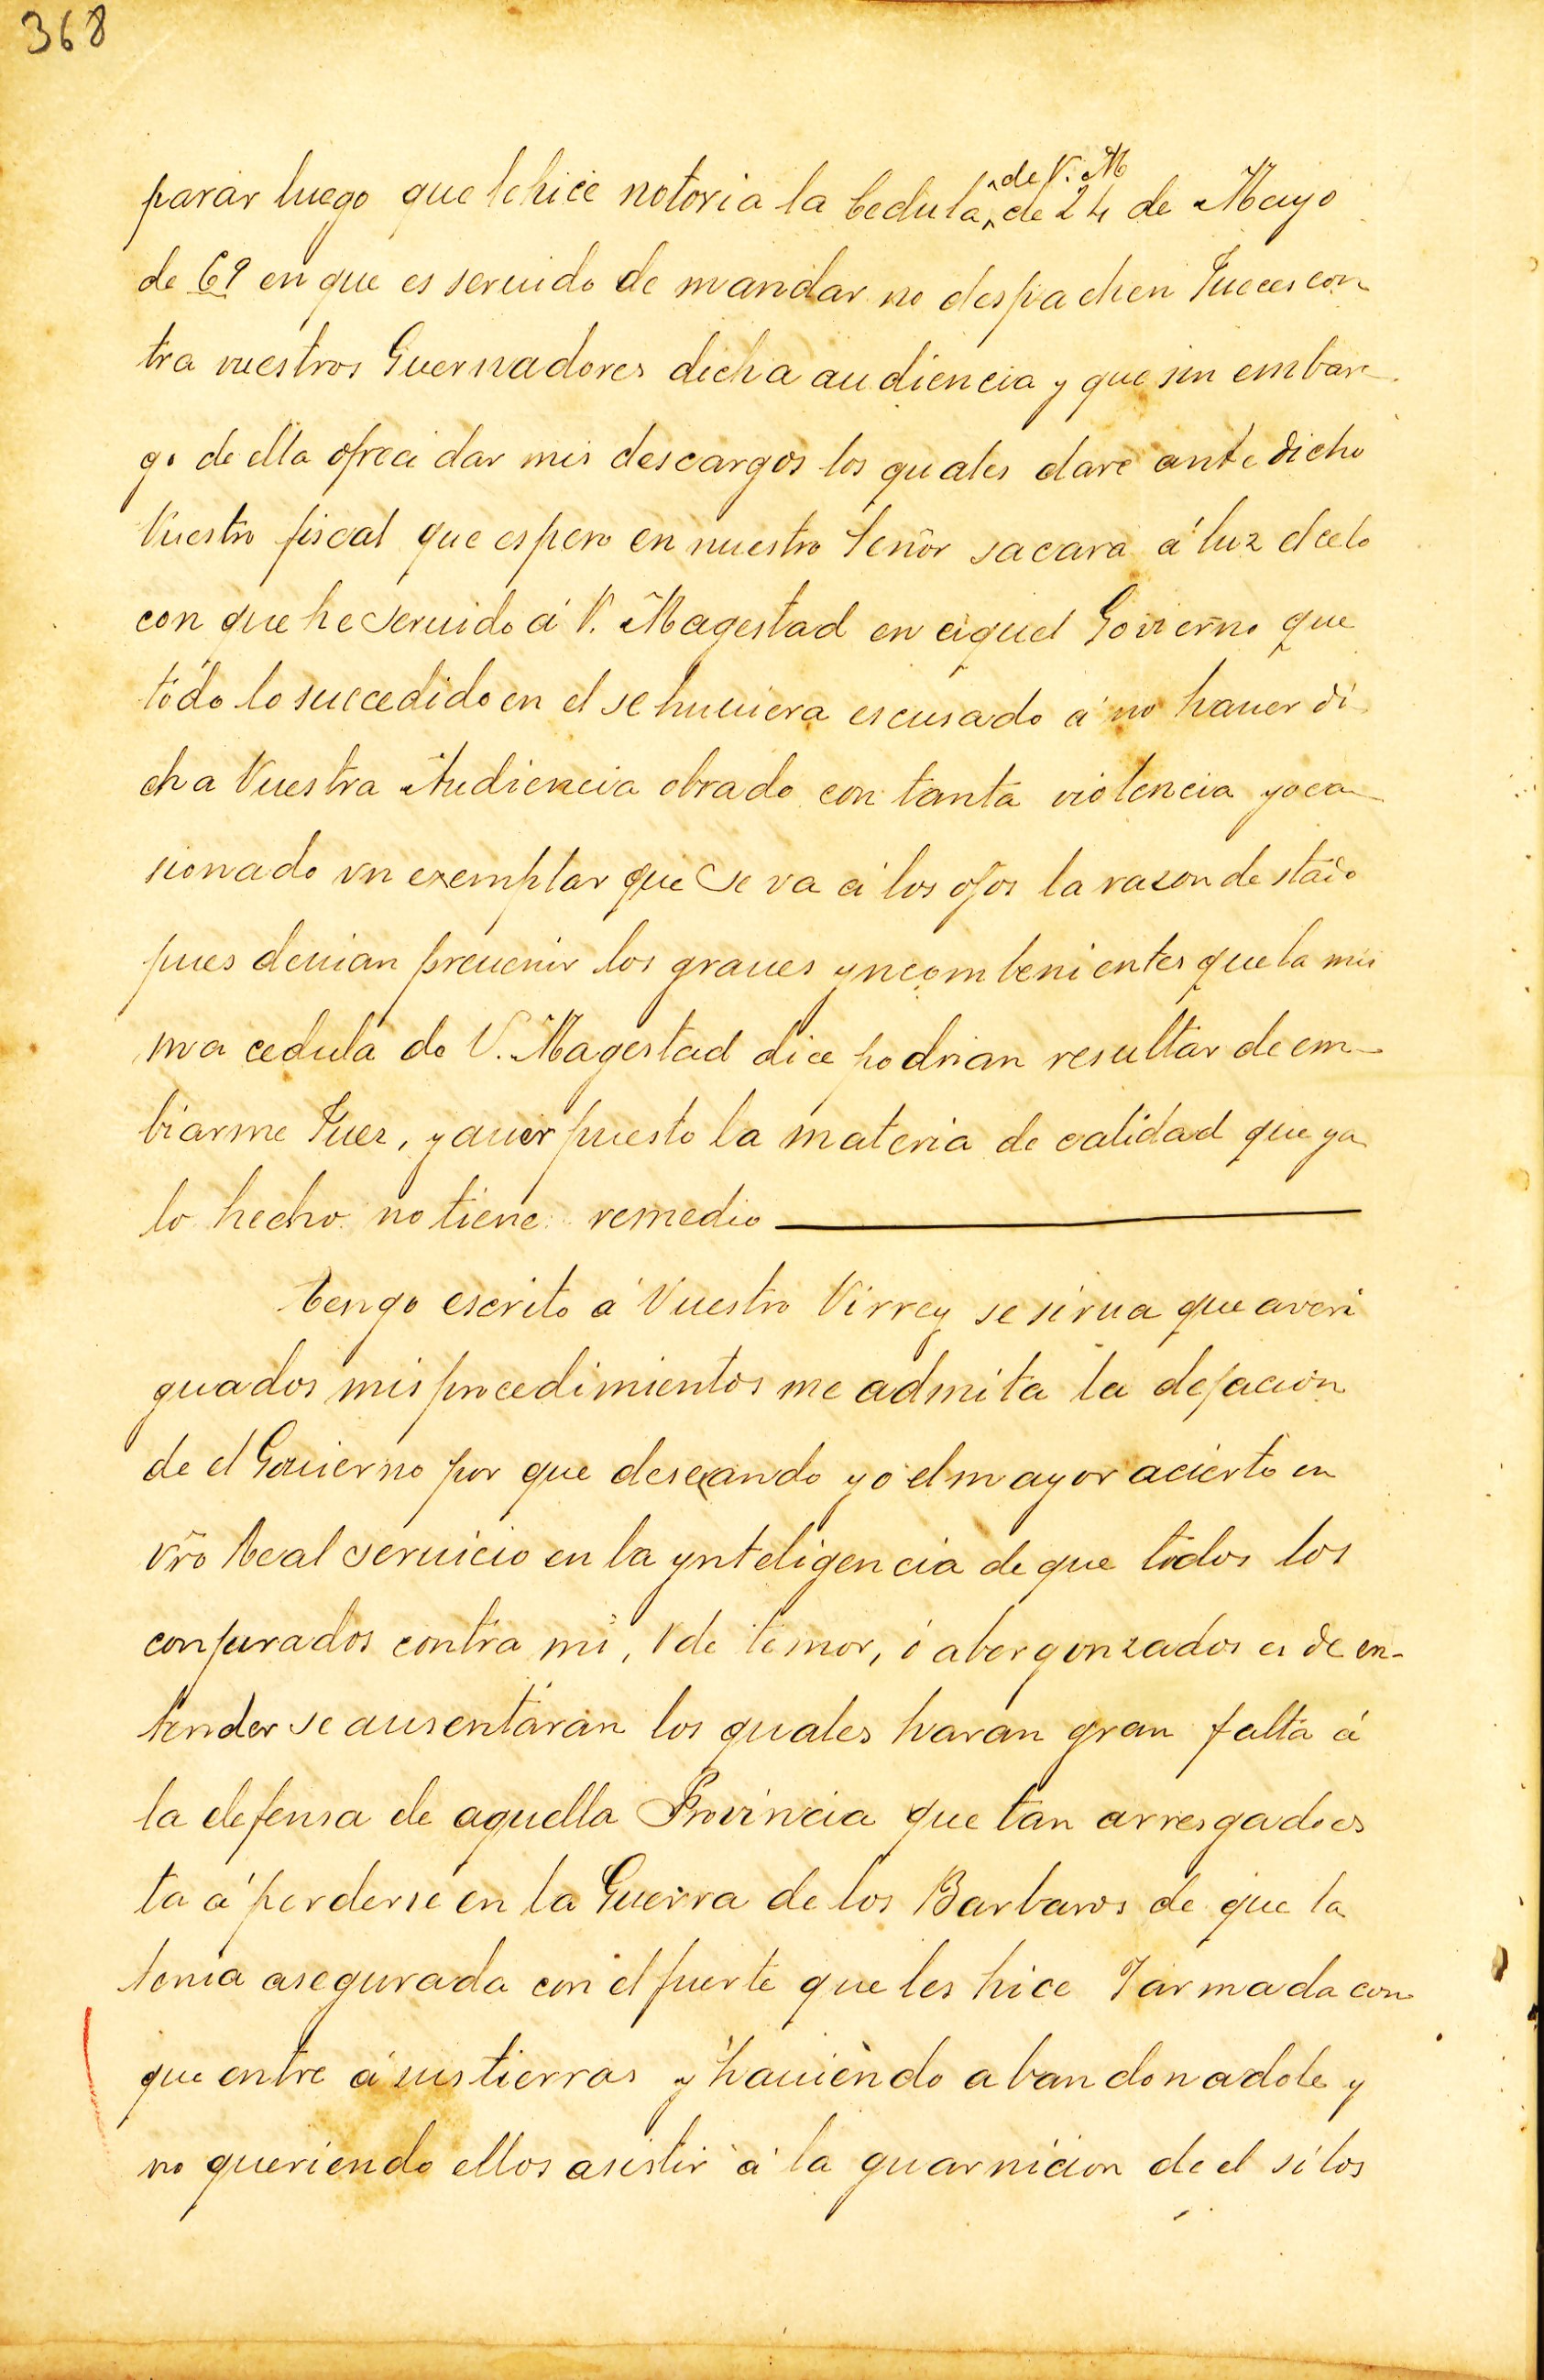 368
parar luego que le hice notoria la Cedula ^de V. M de 24 de Mayo
de 69 en que es seruido de mandar no despachen Jueces con
tra vuestros Guernadores dicha audiencia y que sin embar
go de ella ofreci dar mis descargos los quales dare ante dicho
Vuestro fiscal que espero en nuestro Señor sacara á luz el celo
con que he seruido á V. Magestad en aquel Govierno que
todo lo succedido en el se huuiera escusado á no hauer di
cha Vuestra Audiencia obrado con tanta violencia y oca
sionado vn exemplar que se va á los ojos la razon de stado
pues deuian preuenir los graues yncombenientes que la mis
ma cedula de V. Magestad dice podrian resultar de em-
biarme Juez, y auer puesto la materia de calidad que ya
lo hecho no tiene remedio
Tengo escrito á Vuestro Virrey se sirua que averi
guados mis procedimientos me admita la dejacion
de el Gouierno por que deseando yo el mayor acierto en
vr̃o Real seruicio en la ynteligencia de que todos los
conjurados contra mi, V de temor, ó abergonzados es de en-
tender se ausentáran los quales haran gran falta á
la defensa de aquella Provincia que tan arresgado es
ta á perderse en la Guerra de los Barbaros de que la
tenia asegurada con el fuerte que les hice Y armada con
que entre á sus tierras y hauiendo abandonadole y
no queriendo ellos asistir á la guarnicion de el si los